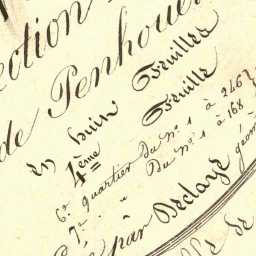 ection
de Penhoue
en huit Feuilles
4ème Feuille
6e quartier du nº 1 à 246
7e " Du nº 1 à 168
par Declaye géom
lle de